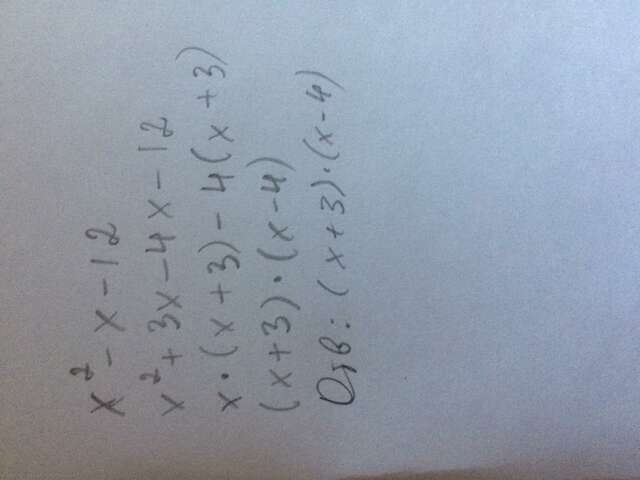 x² - x - 12
x² + 3x - 4x - 12
x · (x + 3) - 4(x + 3)
(x + 3) · (x - 4)
Отв: (x + 3) · (x - 4)